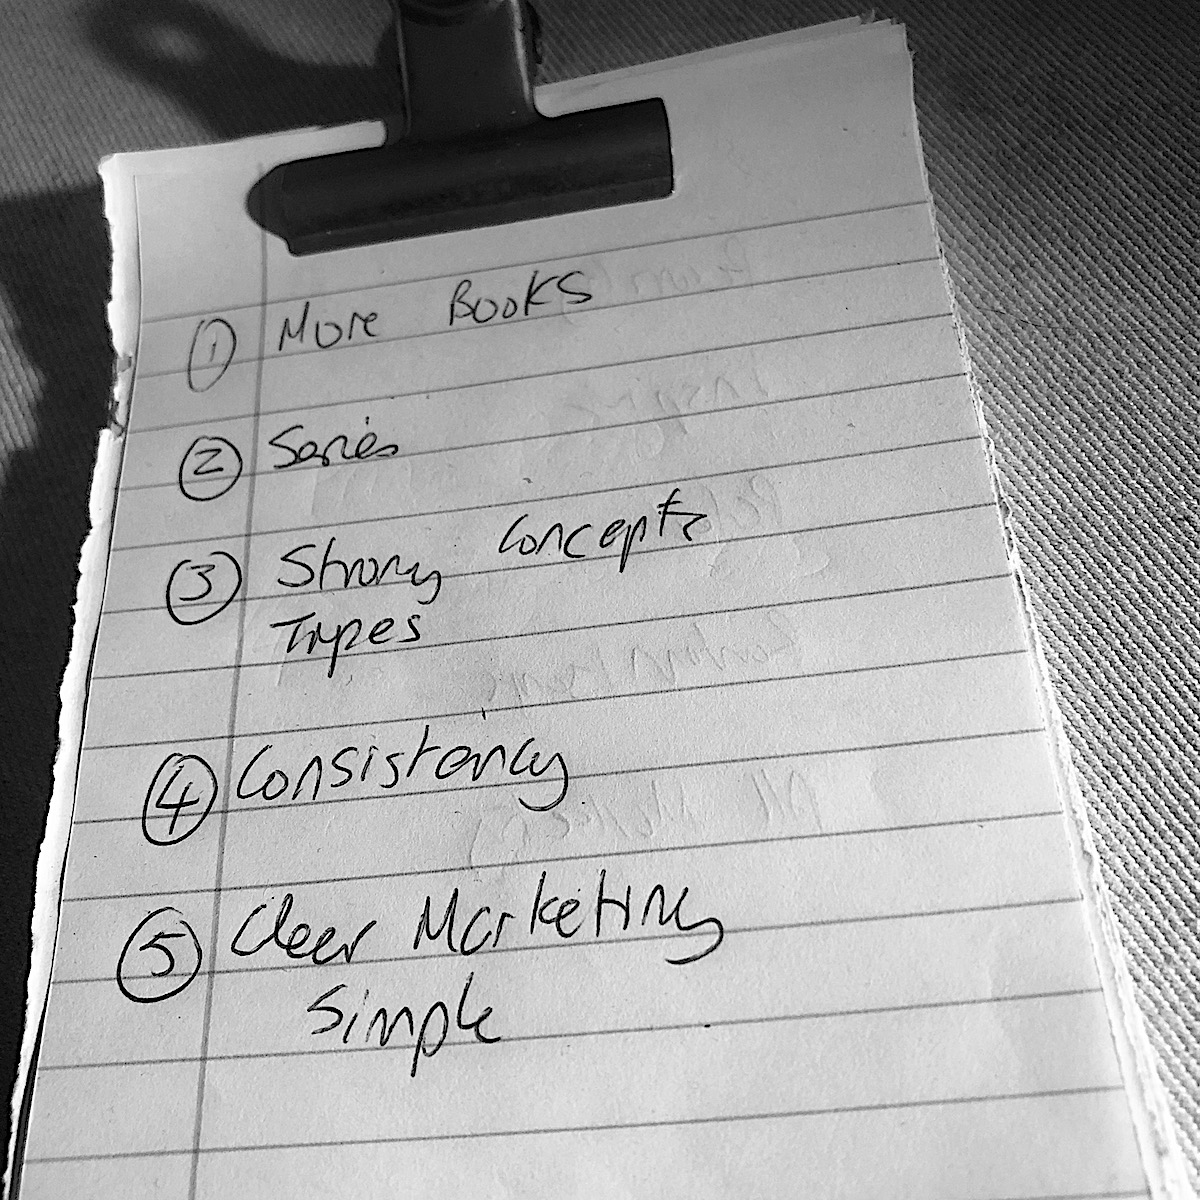 ① More Books
② Series
③ Strong Concepts
Tropes
④ Consistency
⑤ Clear Marketing
Simple